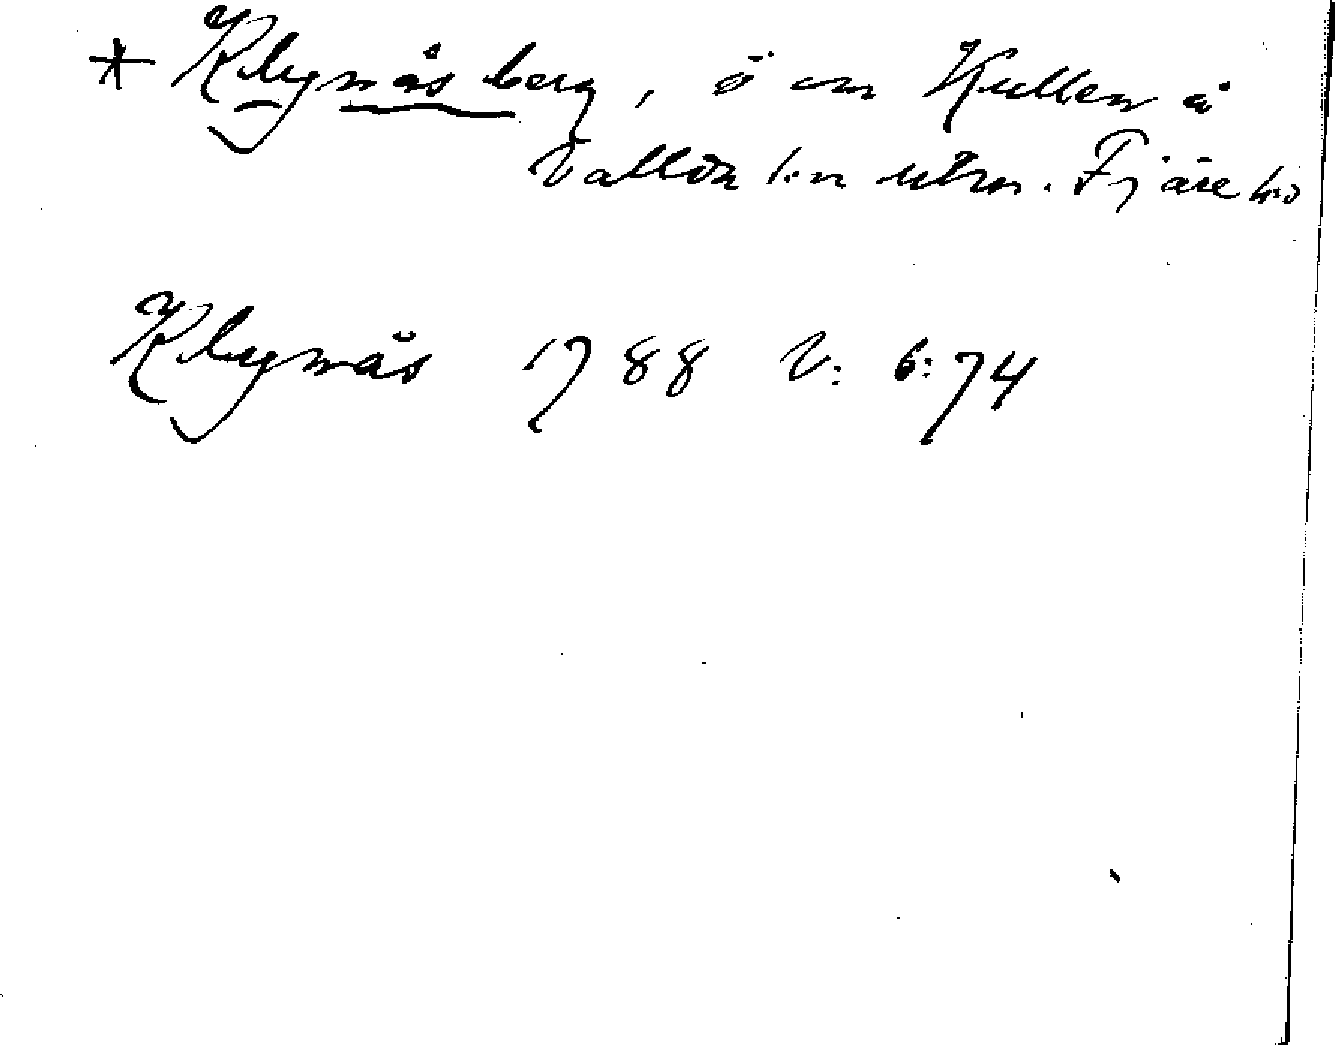 * Klygnås berg, ö om Kullen å
Vallda s:n utm. Fjäre hd
Klygnås 1788 V: 6:74